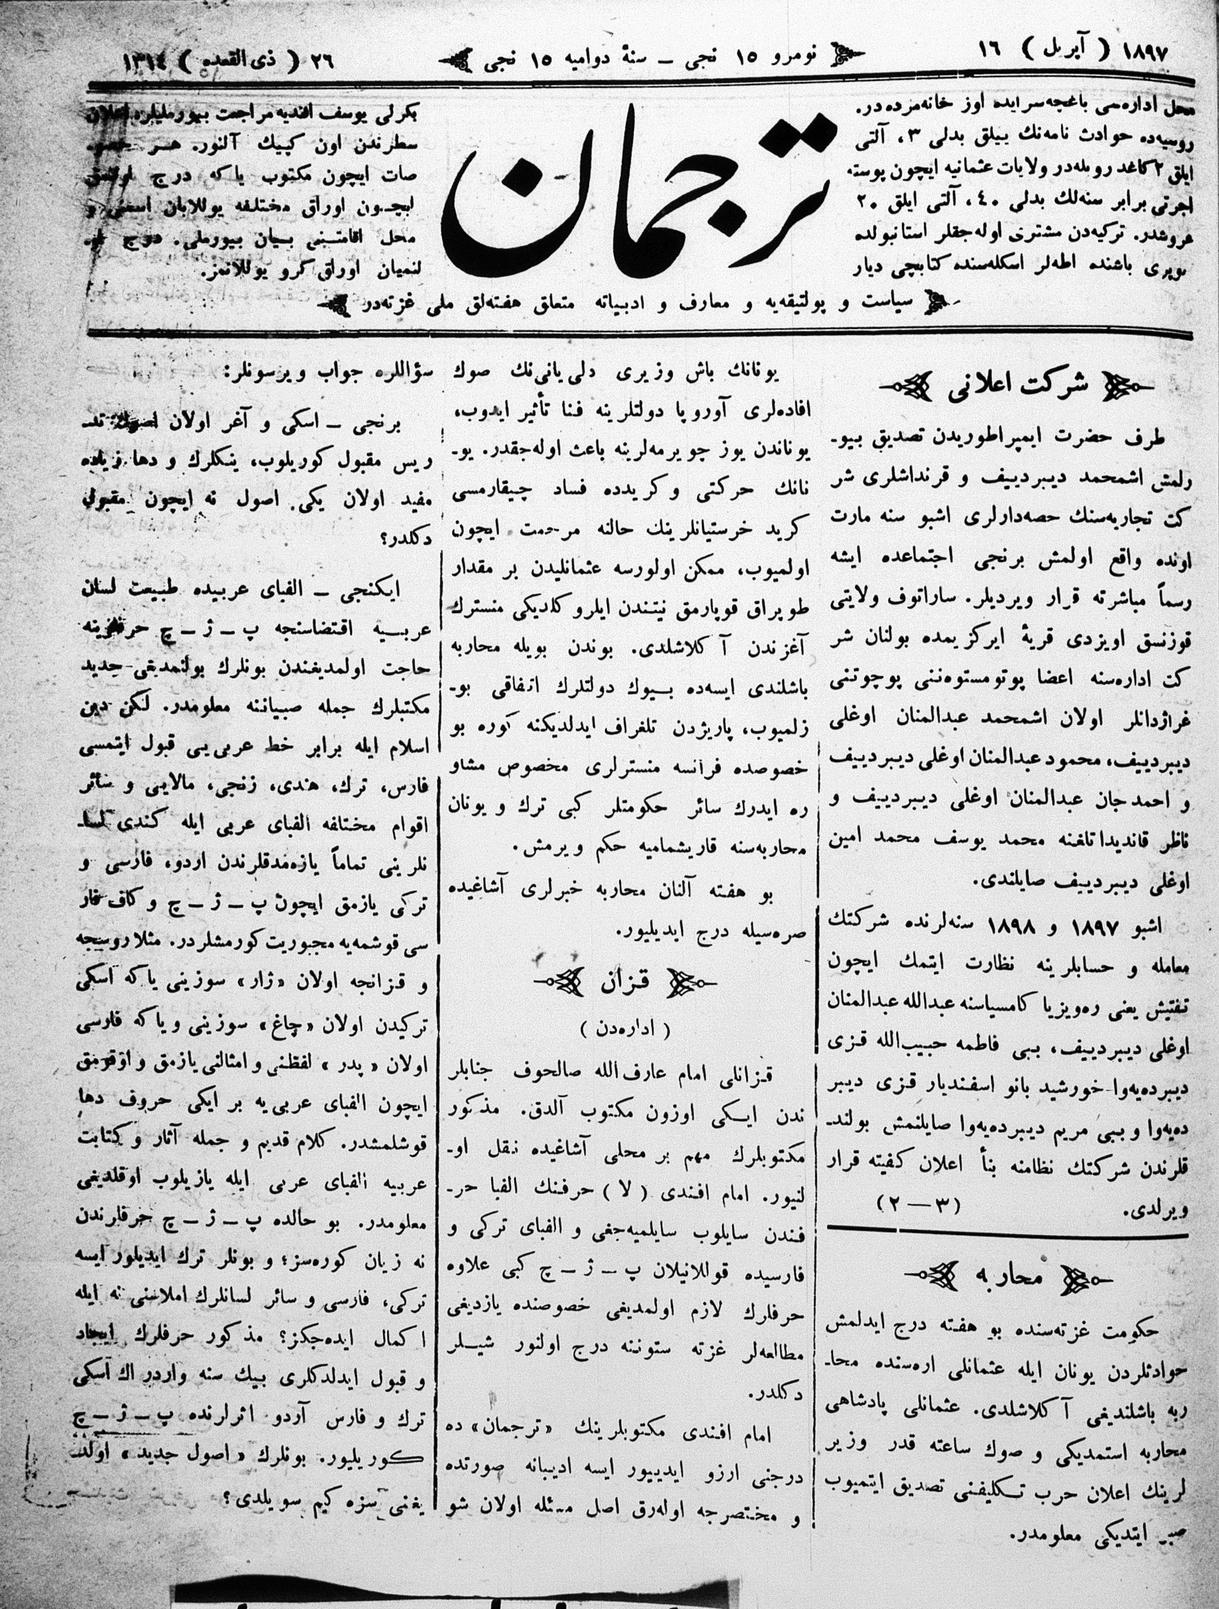 ١٨٩٧ ( آپريل ) ١٦
نومرو ١٥ نجى ــ سنۀ دواميه ١٥ نجى
٢٦ ( ذى القعده ) ١٣١٤
محل اداره‌سى باغچه‌سرايده اوز خانه‌مزده‌در.
روسيه‌ده حوادث نامه‌نك ييلق بدلى ٣، آلتى
ايلق ٢ كاغد روبله‌در ولايات عثمانيه ايچون پوسته
اجرتى برابر سنه‌لك بدلى ٤٠، آلتى ايلق ٢٠
غروشدر. تركيه‌دن مشترى اوله‌جقلر استانبولده
كوپرى باشنده اطه‌لر اسكله‌سنده كتابچى ديار
ترجمان
بكرلى يوسف افنديه مراجعت بيورمليلر. اعلان
سطرندن اون كپيك آلنور. هر
صات ايچون مكتوب ياكه درج اولنمق
ايچون اوراق مختلفه يوللايان اسمنى و
محل اقامتنى بيان بيورملى. درج
لنميان اوراق كرو يوللانمز.
سياست و پولتيقه‌يه و معارف و ادبياته متعلق هفته‌لق ملى غزته‌در
شركت اعلانى
طرف حضرت ايمپراطوريدن تصديق بيو-
رلمش اشمحمد ديبردييف و قرنداشلرى شر
كت تجاريه‌سنك حصه‌دارلرى اشبو سنه مارت
اونده واقع اولمش برنجى اجتماعده ايشه
رسماً مباشرته قرار ويرديلر. ساراتوف ولايتى
قوزنسق اويزدى قريۀ ايركزيمده بولنان شر
كت اداره‌سنه اعضا پوتومستوه‌ننى پوچوتنى
غراژدانلر اولان اشمحمد عبدالمنان اوغلى
ديبردييف، محمود عبدالمنان اوغلى ديبردييف
و احمدجان عبدالمنان اوغلى ديبردييف و
ناظر قانديداتلغنه محمد يوسف محمد امين
اوغلى ديبردييف صايلندى.
اشبو ١٨٩٧ و ١٨٩٨ سنه‌لرنده شركتك
معامله و حسابلرينه نظارت ايتمك ايچون
تفتيش يعنى ره‌ويزيا كامسياسنه عبدالله عبدالمنان
اوغلى ديبردييف، بيى فاطمه حبيب‌الله قزى
ديبرده‌يه‌وا خورشيد بانو اسفنديار قزى ديبر
ده‌يه‌وا و بيى مريم ديبرده‌يه‌وا صايلنمش بولند-
قلرندن شركتك نظامنه بنأ اعلان كفيته قرار
ويرلدى. (٣ — ٢)
محاربه
حكومت غزته‌سنده بو هفته درج ايدلمش
حوادثلردن يونان ايله عثمانلى اره‌سنده محا-
ربه باشلنديغى آكلاشلدى. عثمانلى پادشاهى
محاربه استمديكى و صوك ساعته قدر وزير
لرينك اعلان حرب تكليفنى تصديق ايتميوب
صبر ايتديكى معلومدر.
يونانك باش وزيرى دلى يانى‌نك صوك
افاده‌لرى آوروپا دولتلرينه فنا تأثير ايدوب،
يوناندن يوز چويرمه‌لرينه باعث اوله‌جقدر. يو-
نانك حركتى و كريدده فساد چيقارمسى
كريد خرستيانلرينك حالنه مرحمت ايچون
اولميوب، ممكن اولورسه عثمانليدن بر مقدار
طوپراق قوپارمق نيتندن ايلرو كلديكى منسترك
آغزندن آكلاشلدى. بوندن بويله محاربه
باشلندى ايسه‌ده بيوك دولتلرك اتفاقى بو-
زلميوب، پاريژدن تلغراف ايدلديكنه كوره بو
خصوصده فرانسه منسترلرى مخصوص مشاو
ره ايدرك سائر حكومتلر كبى ترك و يونان
محاربه‌سنه قاريشماميه حكم ويرمش.
بو هفته آلنان محاربه خبرلرى آشاغيده
صره‌سيله درج ايديليور.
قزان
( اداره‌دن )
قزانلى امام عارف‌الله صالحوف جنابلر
ندن ايكى اوزون مكتوب آلدق. مذكور
مكتوبلرك مهم بر محلى آشاغيده نقل او-
لنيور. امام افندى ( لا ) حرفنك الفبا حر-
فندن سايلوب سايلميه‌جغى و الفباى تركى و
فارسيده قوللانيلان پ ــ ژ ــ چ كبى علاوه
حرفلرك لازم اولمديغى خصوصنده يازديغى
مطالعه‌لر غزته ستوننه درج اولنور شيلر
دكلدر.
امام افندى مكتوبلرينك «ترجمان» ده
درجنى ارزو ايدييور ايسه اديبانه صورتده
و مختصرجه اوله‌رق اصل مسئله اولان شو
سؤاللره جواب ويرسونلر:
برنجى ــ اسكى و آغر اولان اصول تد-
ريس مقبول كوريلوب، ينكلرك و دها زياده
مفيد اولان يكى اصول نه ايچون مقبول
دكلدر؟
ايكنجى ــ الفباى عربيده طبيعت لسان
عربيه اقتضاسنجه پ ــ ژ ــ چ حرفلرينه
حاجت اولمديغندن بونلرك بولنمديغى جديد
مكتبلرك جمله صبياننه معلومدر. لكن دين
اسلام ايله برابر خط عربى‌يى قبول ايتمسى
فارس، ترك، هندى، زنجى، مالايى و سائر
اقوام مختلفه الفباى عربى ايله كندى لسا-
نلرينى تماماً يازه‌مدقلرندن اردو، فارسى و
تركى يازمق ايچون پ ــ ژ ــ چ و كاف فار
سى قوشمه‌يه مجبوريت كورمشلردر. مثلا روسيجه
و قزانجه اولان «ژار» سوزينى ياكه اسكى
تركيدن اولان «چاغ» سوزينى و ياكه فارسى
اولان «پدر» لفظنى و امثالنى يازمق و اوقومق
ايچون الفباى عربى‌يه بر ايكى حروف دها
قوشلمشدر. كلام قديم و جمله آثار و كتابت
عربيه الفباى عربى ايله يازيلوب اوقلديغى
معلومدر. بو حالده پ ــ ژ ــ چ حرفلرندن
نه زيان كوره‌سز؛ و بونلر ترك ايديلور ايسه
تركى، فارسى و سائر لسانلرك املاسنى نه ايله
اكمال ايده‌جكز؟ مذكور حرفلرك ايجاد
و قبول ايدلدكلرى بيك سنه واردر اك اسكى
ترك و فارس آردو اثرلرنده پ ــ ژ ــ چ
كوريليور. بونلرك «اصول جديد» اولد-
يغنى سزه كيم سويلدى؟